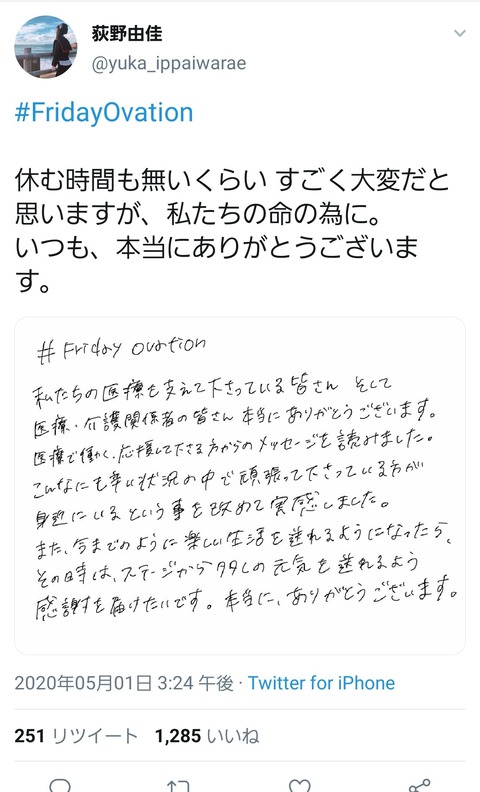 荻野由佳
@yuka_ippaiwarae
#FridayOvation
休む時間も無いくらい すごく大変だと
思いますが、私たちの命の為に。
いつも、本当にありがとうございま
す。
# Friday Ovation
私たちの医療を支えて下さっている皆さん そして
医療・介護関係者の皆さん 本当にありがとうございます。
医療で働く、応援して下さる方からのメッセージを読みました。
こんなにも辛い状況の中で頑張って下さっている方が
身近にいるという事を改めて実感しました。
また、今までのように楽しい生活を送れるようになったら、
その時は、ステージから沢山の元気を送れるよう
感謝を届けたいです。本当に、ありがとうございます。
2020年05月01日 3:24 午後 · Twitter for iPhone
251 リツイート 1,285 いいね